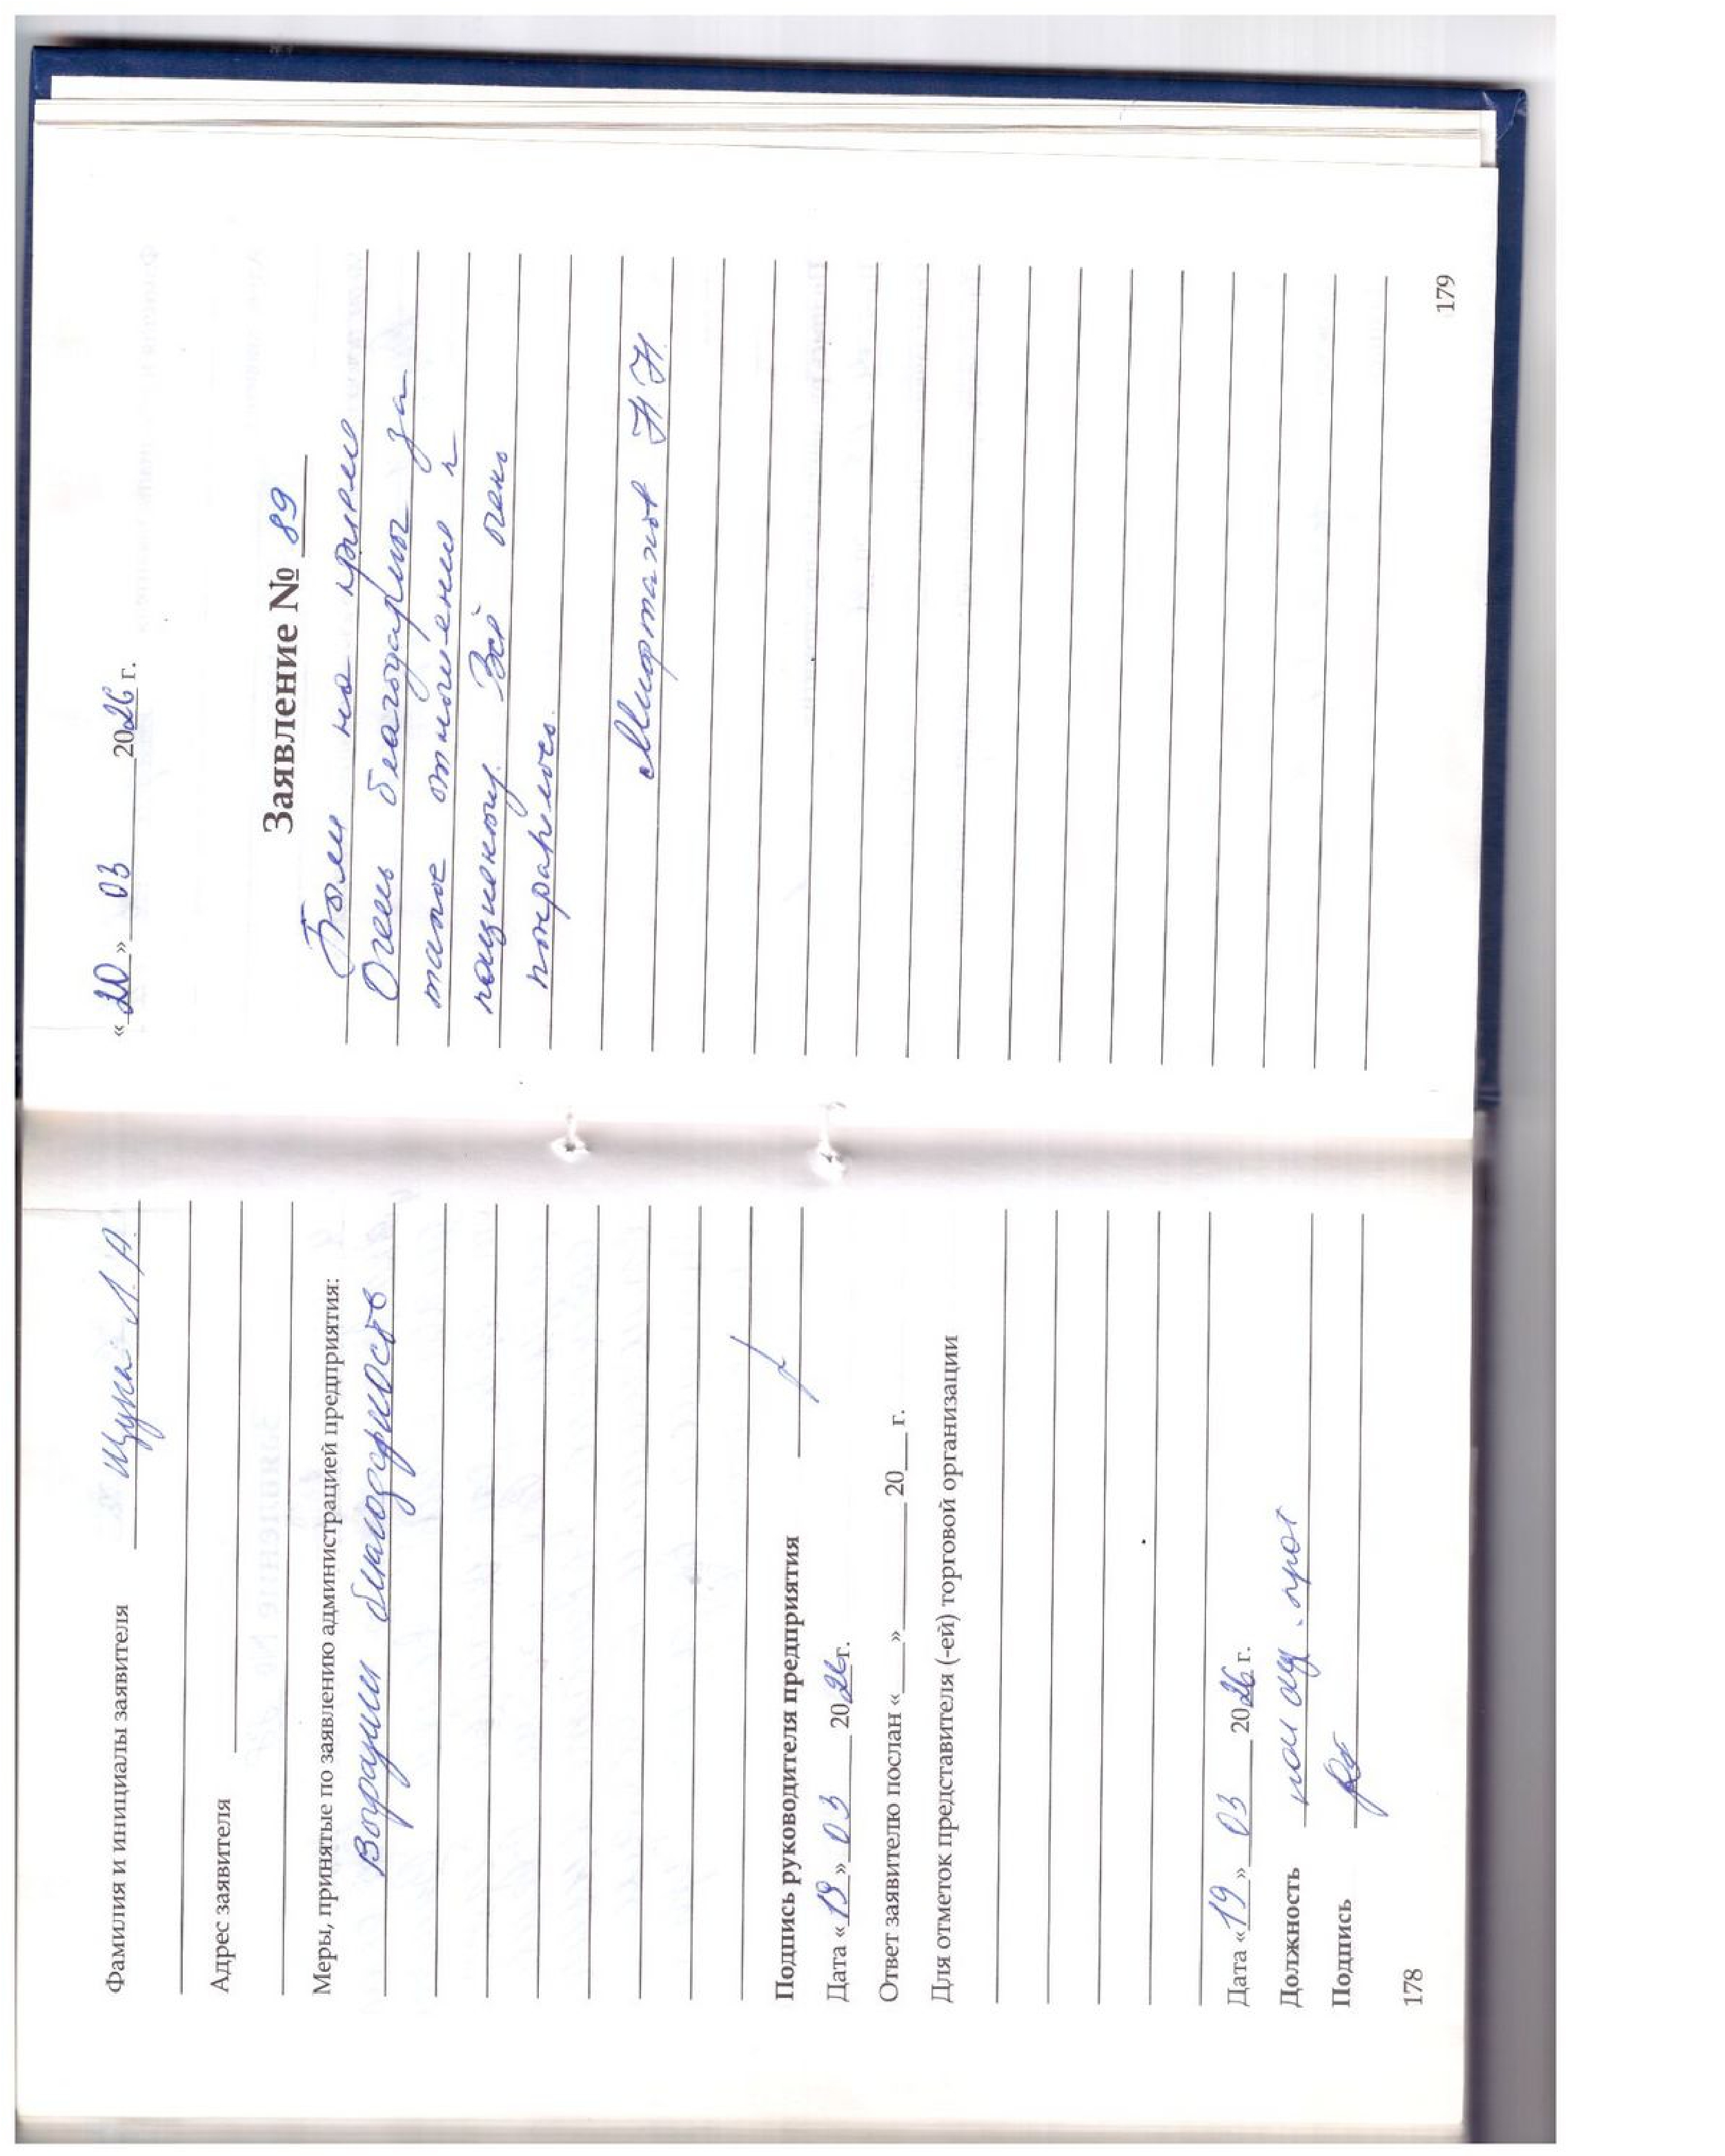 Фамилия и инициалы заявителя Щука Л. А.
Адрес заявителя
Меры, принятые по заявлению администрацией предприятия:
благодарность
Подпись руководителя предприятия
Дата «19» 03 2026г.
Ответ заявителю послан «___»________20___г.
Для отметок представителя (-ей) торговой организации
Дата «19» 03 2026 г.
Должность
Подпись
178
«20» 03 2026 г.
Заявление № 89
Были на приеме
Очень благодарны за
такое отношение к
пациенту. Всё очень
понравилось.
Н. Н.
179